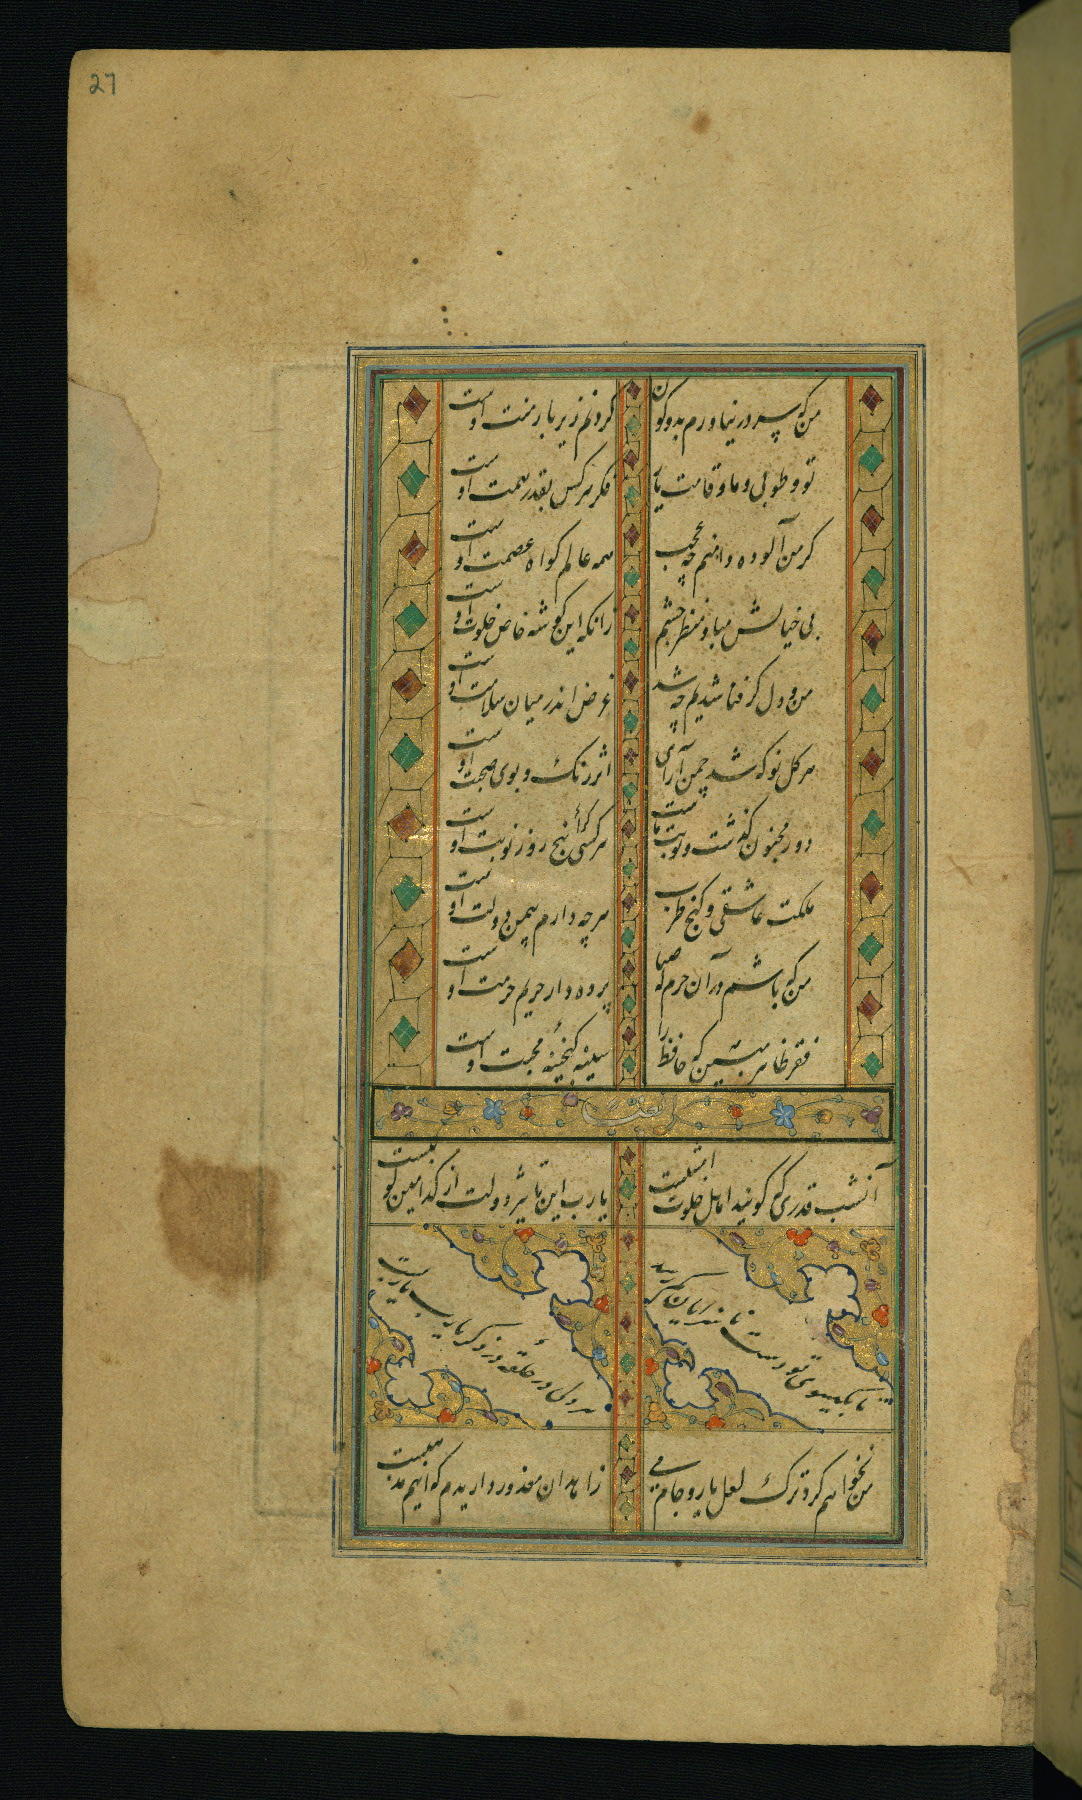 27
من که سر در نیاورم بدو کون
کردنم زیر بار منت اوست
تو و طوبی و ما و قامت یار
فکر هرکس بقدر همت اوست
کر من آلوده دامنم چه عجب
همه عالم کواه عصمت اوست
بی خیالش مباد منظر چشم
زانکه این کوشه خاص خلوت اوست
من و دل کر فنا شدیم چه شد
غرض اندر میان سلامت اوست
هر کل نو که شد چمن آرای
اثر رنک و بوی صحبت اوست
دور مجنون کذشت و نوبت ماست
هر کسی پنج روز نوبت اوست
ملکت عاشقی و کنج طرب
هرچه دارم بیمن دولت اوست
من که باشم در آن حرم که صبا
پرده دار حریم حرمت اوست
فقر ظاهر مبین که حافظ را
سینه کنجینهٔ محبت اوست
آنشب قدری که کویند اهل خلوت امشبست
یارب این تاثیر دولت از کدامین کوکبست
تا بکیسوی تو دست ناسزایان کم رسد
هر دلی در حلقهٔ در ذکر یارب یاربست
من نخواهم کرد ترک لعل یار و جام می
زاهدان معذور داریدم که اینم مذهبست